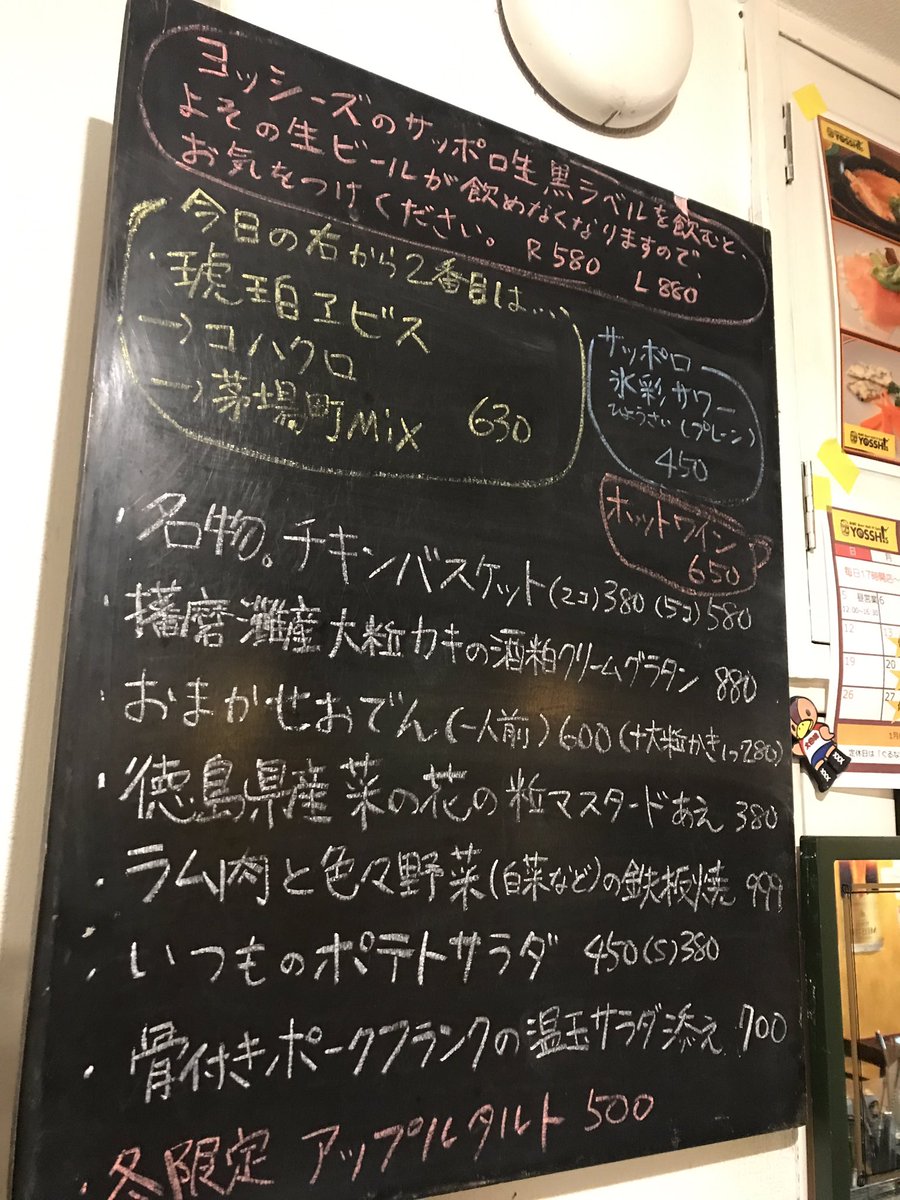 ヨッシーズのサッポロ生黒ラベルを飲むと、
よその生ビールが飲めなくなりますので、
お気をつけください。 R 580 L 880
今日の右から2番目は....
・琥珀ヱビス
→コハクロ
→茅場町Mix 630
サッポロ
氷彩サワー
ひょうさい(プレーン)
450
ホットワイン
650
・名物。チキンバスケット(2コ)380 (5コ)580
・播磨灘産大粒カキの酒粕クリームグラタン 880
・おまかせおでん(一人前)600 (+大粒かき1つ280)
・徳島県産菜の花の粒マスタードあえ 380
・ラム肉と色々野菜(白菜など)の鉄板焼 999
・いつものポテトサラダ 450(S)380
・骨付きポークフランクの温玉サラダ添え 700
・冬限定 アップルタルト 500
YOSSHI
YOSSHI
YOSSHI
日 月
毎日17時開店〜
5 昼営業 6
12 13
19 20
26 27